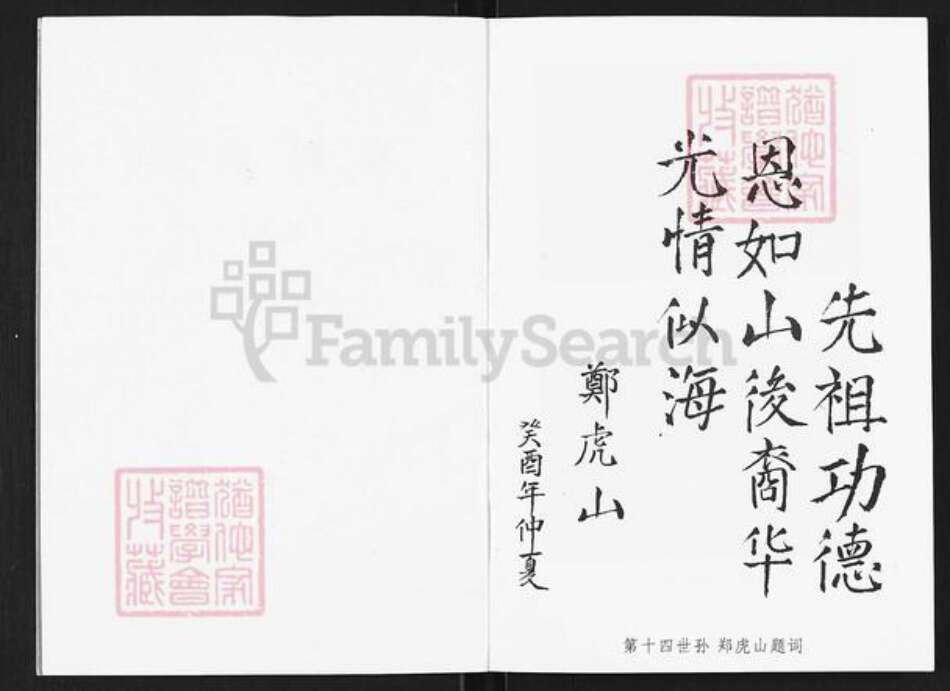 先祖功德
恩如山後裔华
光情似海
鄭虎山
癸酉年仲夏
第十四世孙 郑虎山题词
FamilySearch
家譜學會
收藏
家譜學會
收藏